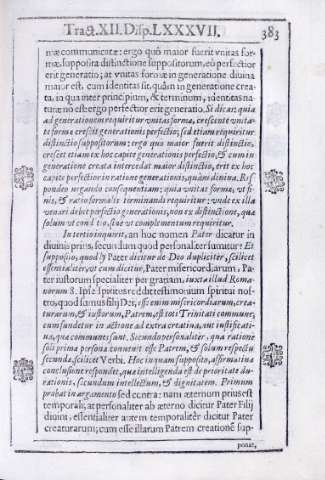 Tract. XII. Disp. LXXXVII. 383
mæ communicatæ: ergo quò maior fuerit vnitas for-
mæ, supposita distinctione suppositorum, eò perfectior
erit generatio; at vnitas formæ in generatione diuina
maior est, cum identitas sit, quàm in generatione crea-
ta, in qua inter principium, & terminum, identitas na-
turæ non est: ergo perfectior erit generatio. Si dicat: quia
ad generationem requiritur vnitas formæ, crescente vnita-
te formæ crescit generationis perfectio; sed etiam requiritur
distinctio suppositorum: ergo quò maior fuerit distinctio,
crescet etiam ex hoc capite generationis perfectio, & cum in
generatione creata intercedat maior distinctio, erit ex hoc
capite perfectior in ratione generationis, quàm diuina. Res
pondeo negando consequentiam: quia vnitas formæ, vt fi-
nis, & ratio formalis terminandi requiritur: vnde ex illa
venari debet perfectio generationis, non ex distinctione, quæ
solùm vt conditio, siue vt complementum requiritur.
Intertio inquirit, an hoc nomen Pater dicatur in
diuinis priùs, secundum quod personaliter sumitur? Et
supposito, quod ly Pater dicitur de Deo dupliciter, scilicet
essentialiter, vt cum dicitur, Pater misericordiarum, Pa-
ter iustorum specialiter per gratiam, iuxta illud Roma-
norum 8. Ipse spiritus reddit testimonium spiritui nos-
tro, quod sumus filij Dei, esse enim misericordiarum, crea-
turarum, & iustorum, Patrem, est toti Trinitati commune,
cum fundetur in actione ad extra creatina, aut iustificati-
ua, quæ communes sunt. Secundo personaliter, qua ratione
soli primæ personæ conuenit esse Patrem, & solum respectu
secundæ, scilicet Verbi. Hoc inquam supposito, affirmatiua
conclusione respondet, quæ intelligenda est de prioritate du-
rationis, secundum intellectum, & dignitatem. Primum
probat in argumento sed contra: nam æternum prius est
temporali, at personaliter ab æterno dicitur Pater Filij
diuini, essentialiter autem temporaliter dicitur Pater
creaturarum; cum esse illarum Patrem creationẽ sup-
ponat,